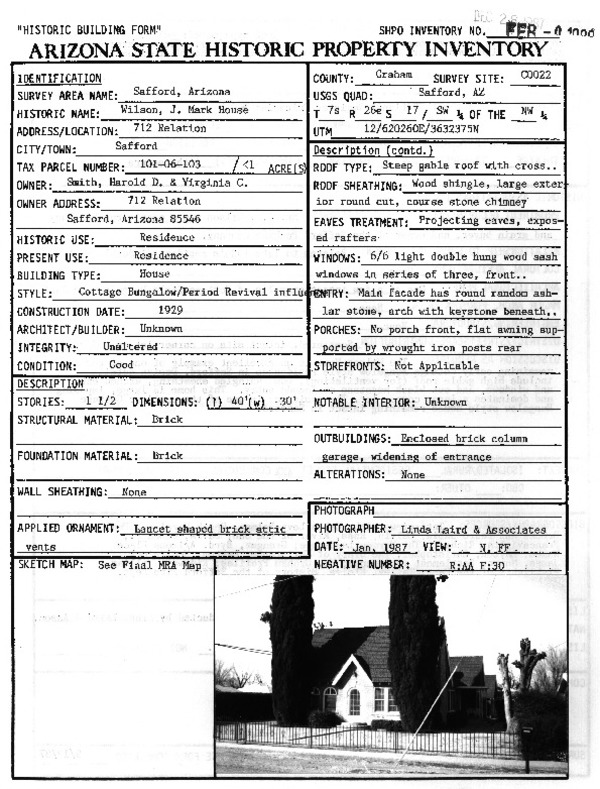 "HISTORIC BUILDING FORM"
SHPO INVENTORY NO.
ARIZONA STATE HISTORIC PROPERTY INVENTORY
IDENTIFICATION
SURVEY AREA NAME: Safford, Arizona
HISTORIC NAME: Wilson, J. Mark House
ADDRESS/LOCATION: 712 Relation
CITY/TOWN: Safford
TAX PARCEL NUMBER: 101-06-103 /<1 ACRE(S)
OWNER: Smith, Harold D. & Virginia C.
OWNER ADDRESS: 712 Relation
Safford, Arizona 85546
HISTORIC USE: Residence
PRESENT USE: Residence
BUILDING TYPE: House
STYLE: Cottage Bungalow/Period Revival influ
CONSTRUCTION DATE: 1929
ARCHITECT/BUILDER: Unknown
INTEGRITY: Unaltered
CONDITION: Good
DESCRIPTION
STORIES: 1 1/2 DIMENSIONS: (l) 40'(w) 30'
STRUCTURAL MATERIAL: Brick
FOUNDATION MATERIAL: Brick
WALL SHEATHING: None
APPLIED ORNAMENT: Lancet shaped brick attic
vents
COUNTY: Graham SURVEY SITE: C0022
USGS QUAD: Safford, AZ
T 7s R 26e S 17 / SW ¼ OF THE NW ¼
UTM 12/620260E/3632375N
Description (contd.)
ROOF TYPE: Steep gable roof with cross..
ROOF SHEATHING: Wood shingle, large exter
ior round cut, course stone chimney
EAVES TREATMENT: Projecting eaves, expos-
ed rafters
WINDOWS: 6/6 light double hung wood sash
windows in series of three, front..
ENTRY: Main facade has round random ash-
lar stone, arch with keystone beneath,.
PORCHES: No porch front, flat awning sup-
ported by wrought iron posts rear
STOREFRONTS: Not Applicable
NOTABLE INTERIOR: Unknown
OUTBUILDINGS: Enclosed brick column
garage, widening of entrance
ALTERATIONS: None
PHOTOGRAPH
PHOTOGRAPHER: Linda Laird & Associates
DATE: Jan. 1987 VIEW: N, FF
NEGATIVE NUMBER: R:AA F:30
SKETCH MAP: See Final MRA Map